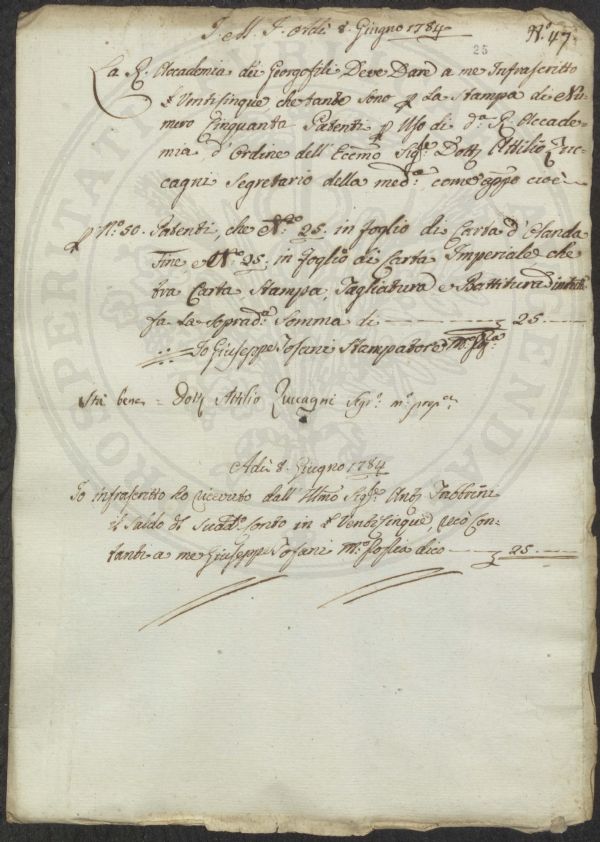 J. M. J. Adì 8. Giugno 1784
25
N.o 47
La R. Accademia dei Georgofili Deve Dare a me Infrascritto
£ Ventisinque che tante sono p La Stampa di Nu=
mero Cinquanta Patenti p Uso di d.a R. Accade=
mia d'Ordine dell'Eccmo Sig.e Dott Attilio Zuc=
cagni Segretario della med.a come app.o cioè
p N.o 50. Patenti, che N.o 25. in foglio di Carta d'Olanda
Fine e N.o 25. in foglio di Carta Imperiale che
tra Carta Stampa, Tagliatura e Battitura in tutto
fa La soprad.a Somma di £ 25
Io Giuseppe Tofani Stampatore M.o Pp.a
Sta bene = Dott Attilio Zuccagni Segr.o m.o prop.a
Adì 8. Giugno 1784
Io infrascritto ho ricevuto dall'Illmo Sig.e Ant.o Fabbrini
il Saldo di Sudd.o Conto in £ Ventisinque, recò Con=
tanti a me Giuseppe Tofani M.o Pp.a dico £ 25
PROSPERITATI
AUGENDAE